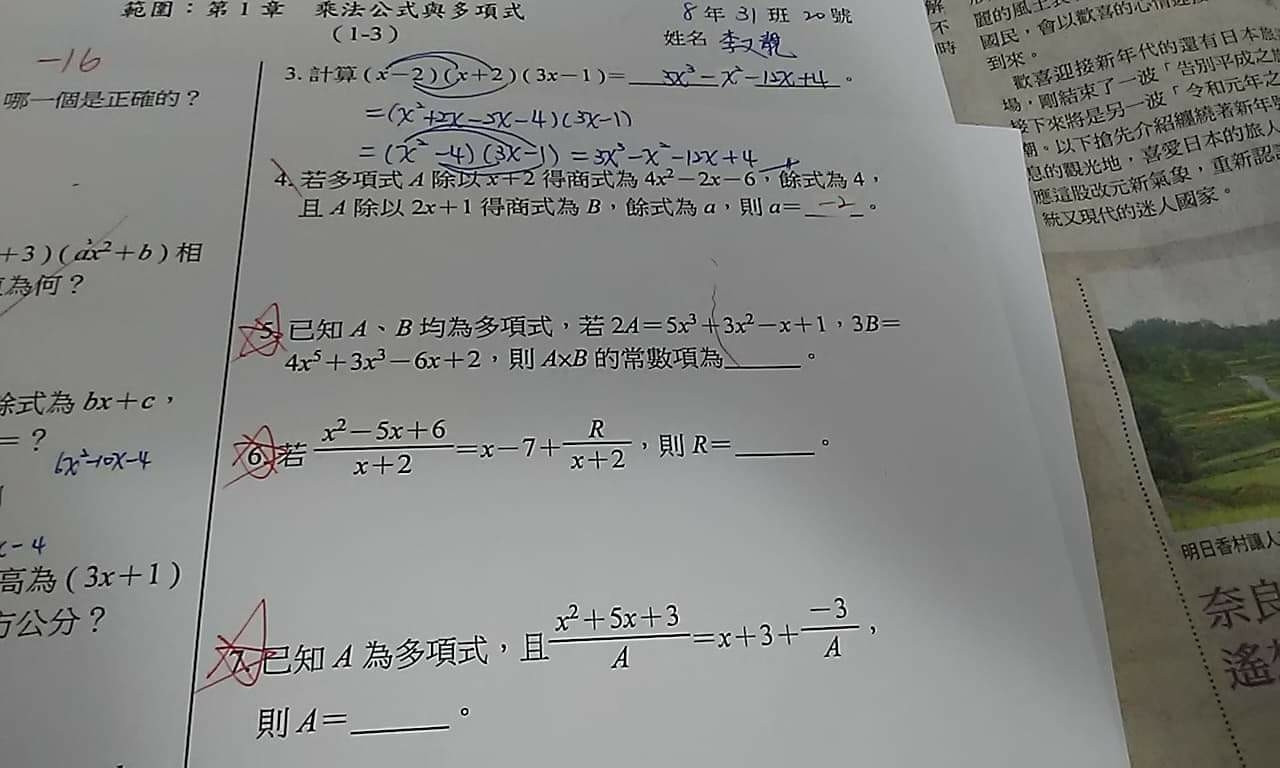 範圍：第1章 乘法公式與多項式
(1-3)
8年31班20號
姓名
-16
哪一個是正確的？
+3)(ax²+b)相
為何？
餘式為 bx+c，
=？
6x²-10x-4
x-4
高為(3x+1)
方公分？
3. 計算(x-2)(x+2)(3x-1)= 3x³-x²-12x+4 。
=(x²+2x-2x-4)(3x-1)
=(x²-4)(3x-1)=3x³-x²-12x+4
4. 若多項式 A 除以 x+2 得商式為 4x²-2x-6，餘式為 4，
且 A 除以 2x+1 得商式為 B，餘式為 a，則 a= -2 。
5. 已知 A、B 均為多項式，若 2A=5x³+3x²-x+1，3B=
4x⁵+3x³-6x+2，則 A×B 的常數項為_____。
6. 若 (x²-5x+6)/(x+2) = x-7+ R/(x+2)，則 R=_____。
7. 已知 A 為多項式，且 (x²+5x+3)/A = x+3+ (-3)/A，
則 A=_____。
解
不
時
國民，會以歡喜的心情
到來。
歡喜迎接新年代的還有日本旅
場，剛結束了一波「告別平成之
接下來將是另一波「令和元年之
潮。以下搶先介紹纏繞著新年
息的觀光地，喜愛日本的旅人
應這股改元新氣象，重新認
統又現代的迷人國家。
明日香村讓人
奈良
遙